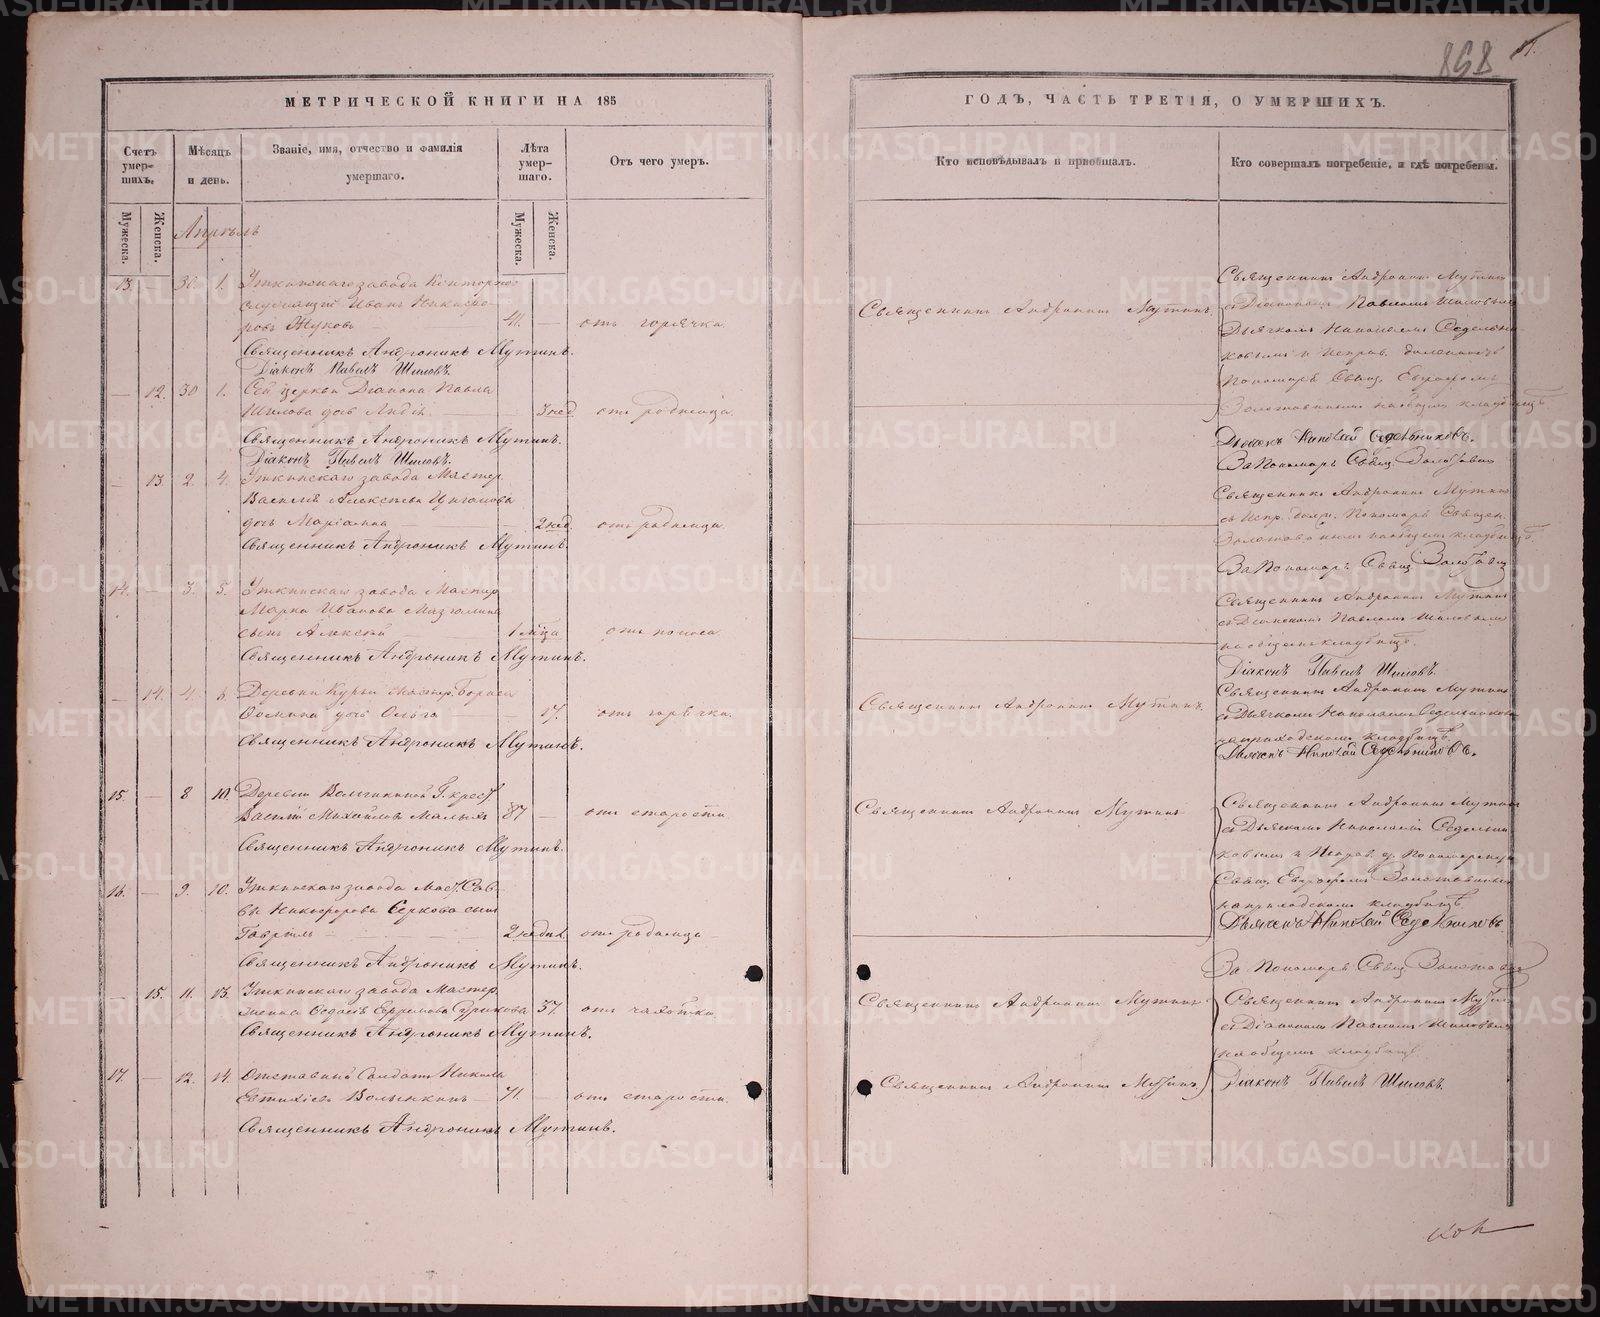 858
МЕТРИЧЕСКОЙ КНИГИ НА 185
ГОДЪ, ЧАСТЬ ТРЕТІЯ, О УМЕРШИХЪ.
Счетъ умер-шихъ.
Мѣсяцъ и день.
Званіе, имя, отчество и фамилія умершаго.
Лѣта умер-шаго.
Отъ чего умеръ.
Кто исповѣдывалъ и пріобщалъ.
Кто совершалъ погребеніе, и гдѣ погребены.
Мужеска.
Женска.
Мужеска.
Женска.
Апрѣль
13. — 30. 1. Уткинскаго завода Конторно
служащій Иванъ Никифо-
ровъ Жуковъ 41. — отъ горячки.
Священникъ Андроникъ Мутинъ.
Діаконъ Павелъ Шиловъ.
— 12. 30 1. Сей церкви Діакона Павла
Шилова дочь Лидія. 3 нед. отъ родимца.
Священникъ Андроникъ Мутинъ.
Діаконъ Павелъ Шиловъ.
— 13. 2. 4. Уткинскаго завода Мастер.
Василія Алексѣева
дочь Маріанна 2 нед. отъ родимца.
Священникъ Андроникъ Мутинъ.
14. — 3. 5. Уткинскаго завода Мастер
Марка Иванова
сынъ Алексѣй 1 мѣца отъ поноса.
Священникъ Андроникъ Мутинъ.
— 14. 4. 6. Деревни Курьи Мастер. Бориса
дочь Ольга — 17. отъ горячки.
Священникъ Андроникъ Мутинъ.
15. — 8 10. Деревни Г. крест.
Василій Михайловъ Малыхъ 87 — отъ старости.
Священникъ Андроникъ Мутинъ.
16. — 9. 10. Уткинскаго завода Маст. Сав-
вы Никифорова Серкова сынъ
Гавріилъ 2 недѣл. отъ родимца
Священникъ Андроникъ Мутинъ.
— 15. 11. 13. Уткинскаго завода Мастер.
женка Ефремова 37. отъ чахотки.
Священникъ Андроникъ Мутинъ.
17. — 12. 14. Отставный Солдатъ Никола
Евтихіевъ Волынкинъ 71. — отъ старости.
Священникъ Андроникъ Мутинъ.
Священникъ Андроникъ Мутинъ.
Священникъ Андроникъ Мутинъ.
Священникъ Андроникъ Мутинъ
Священникъ Андроникъ Мутинъ
Священникъ Андроникъ Мутинъ
Священникъ Андроникъ Мутинъ
съ Діакономъ Павломъ Шиловымъ
Дьячкомъ Николаемъ Седельни-
ковымъ и Исправ. должность
Пономаря Свящ. Евграфомъ
Золотавинымъ на общемъ кладбищѣ
Дьячекъ Николай Седельниковъ.
За Пономаря Свящ. Золотавинъ
Священникъ Андроникъ Мутинъ
съ Испр. долж. Пономаря Священ.
Золотавинымъ на общемъ кладбищѣ.
За Пономаря Свящ. Золотавинъ
Священникъ Андроникъ Мутинъ
съ Діакономъ Павломъ Шиловымъ
на общемъ кладбищѣ.
Діаконъ Павелъ Шиловъ.
Священникъ Андроникъ Мутинъ
съ Дьячкомъ Николаемъ Седельниковымъ
на приходскомъ кладбищѣ.
Дьячекъ Николай Седельниковъ.
Священникъ Андроникъ Мутинъ
съ Дьячкомъ Николаемъ Седельни-
ковымъ и Исправ. д. Пономаря
Свящ. Евграфомъ Золотавинымъ
на приходскомъ кладбищѣ.
Дьячекъ Николай Седельниковъ
За Пономаря Свящ. Золотавинъ
Священникъ Андроникъ Мутинъ
съ Діакономъ Павломъ Шиловымъ
на общемъ кладбищѣ
Діаконъ Павелъ Шиловъ.
METRIKI.GASO-URAL.RU